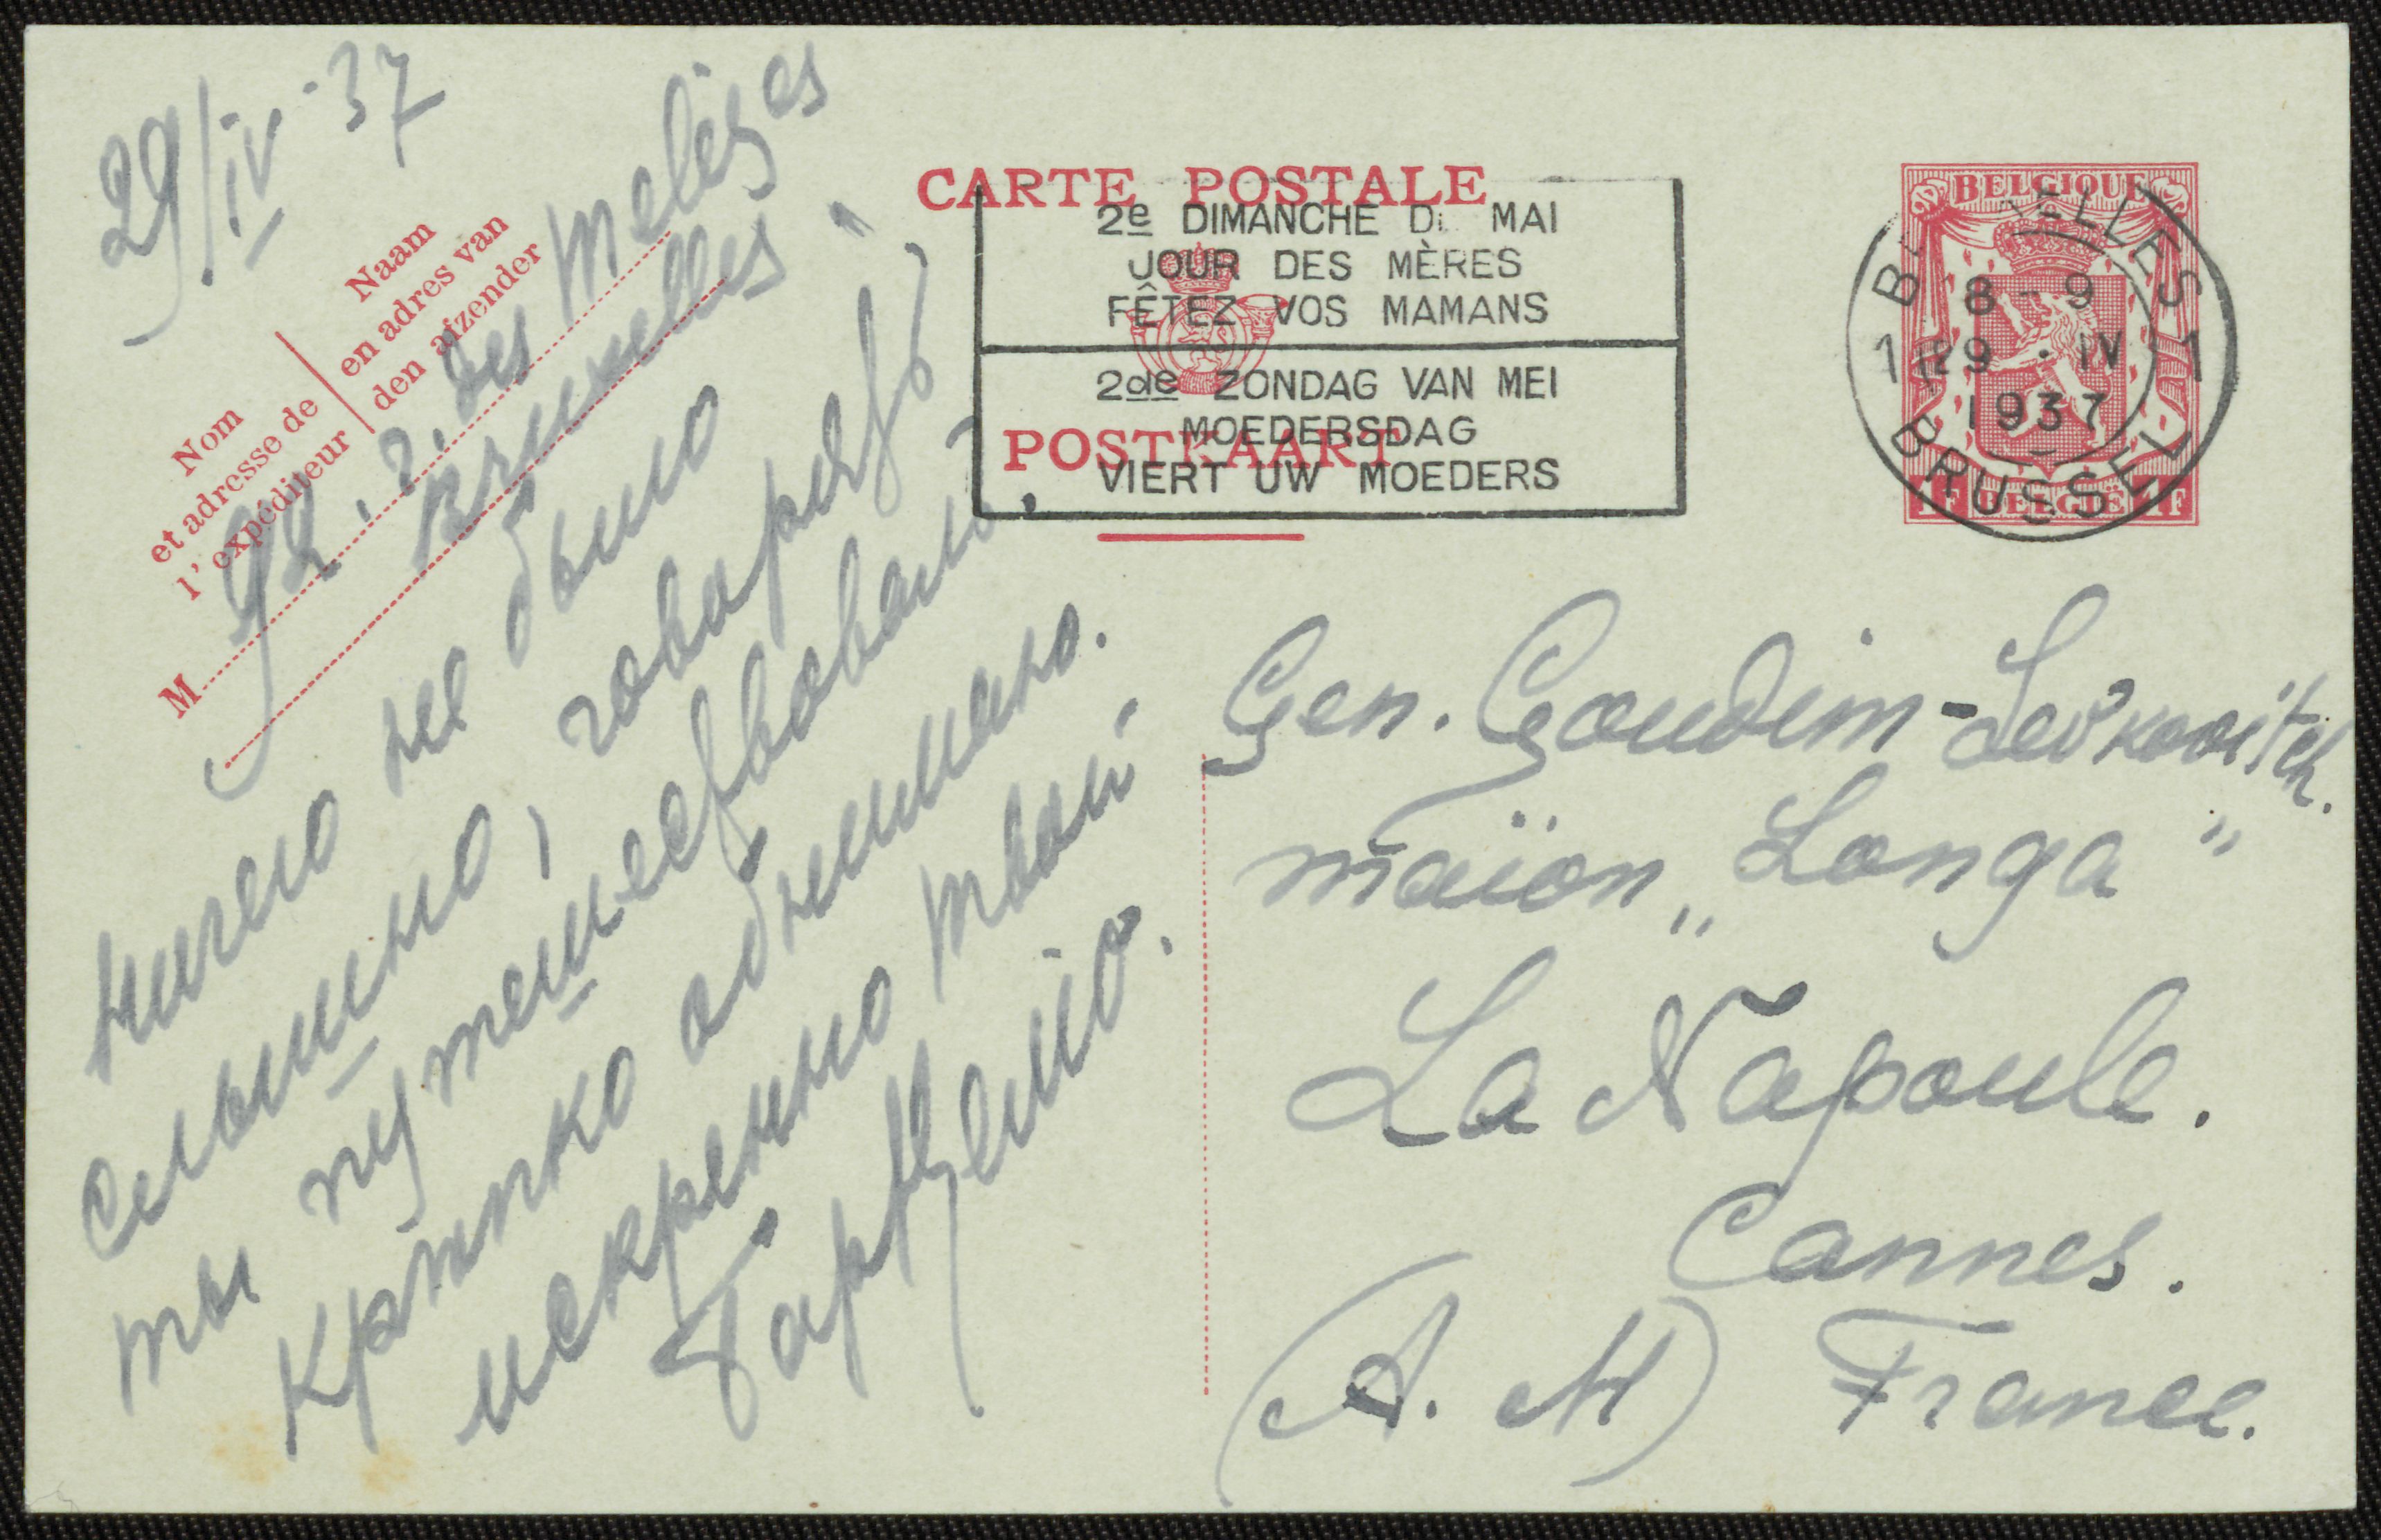 29/IV·37
Naam
en adres van
den afzender
Nom
et adresse de
l'expéditeur
92. r. des Mélèzes
Bruxelles
M
ничего не было
слышно, говорят
ты путешествовали,
крѣпко обнимаю.
искренно твой
CARTE POSTALE
POSTKAART
2e DIMANCHE DE MAI
JOUR DES MÈRES
FÊTEZ VOS MAMANS
2de ZONDAG VAN MEI
MOEDERSDAG
VIERT UW MOEDERS
BELGIQUE
BRUXELLES
8-9
1 29·IV 1
1937
BRUSSEL
1F BELGIË 1F
Gen. Goudim-Levkovitch.
maïon „Longa“
La Napoule.
Cannes.
(A. M) France.